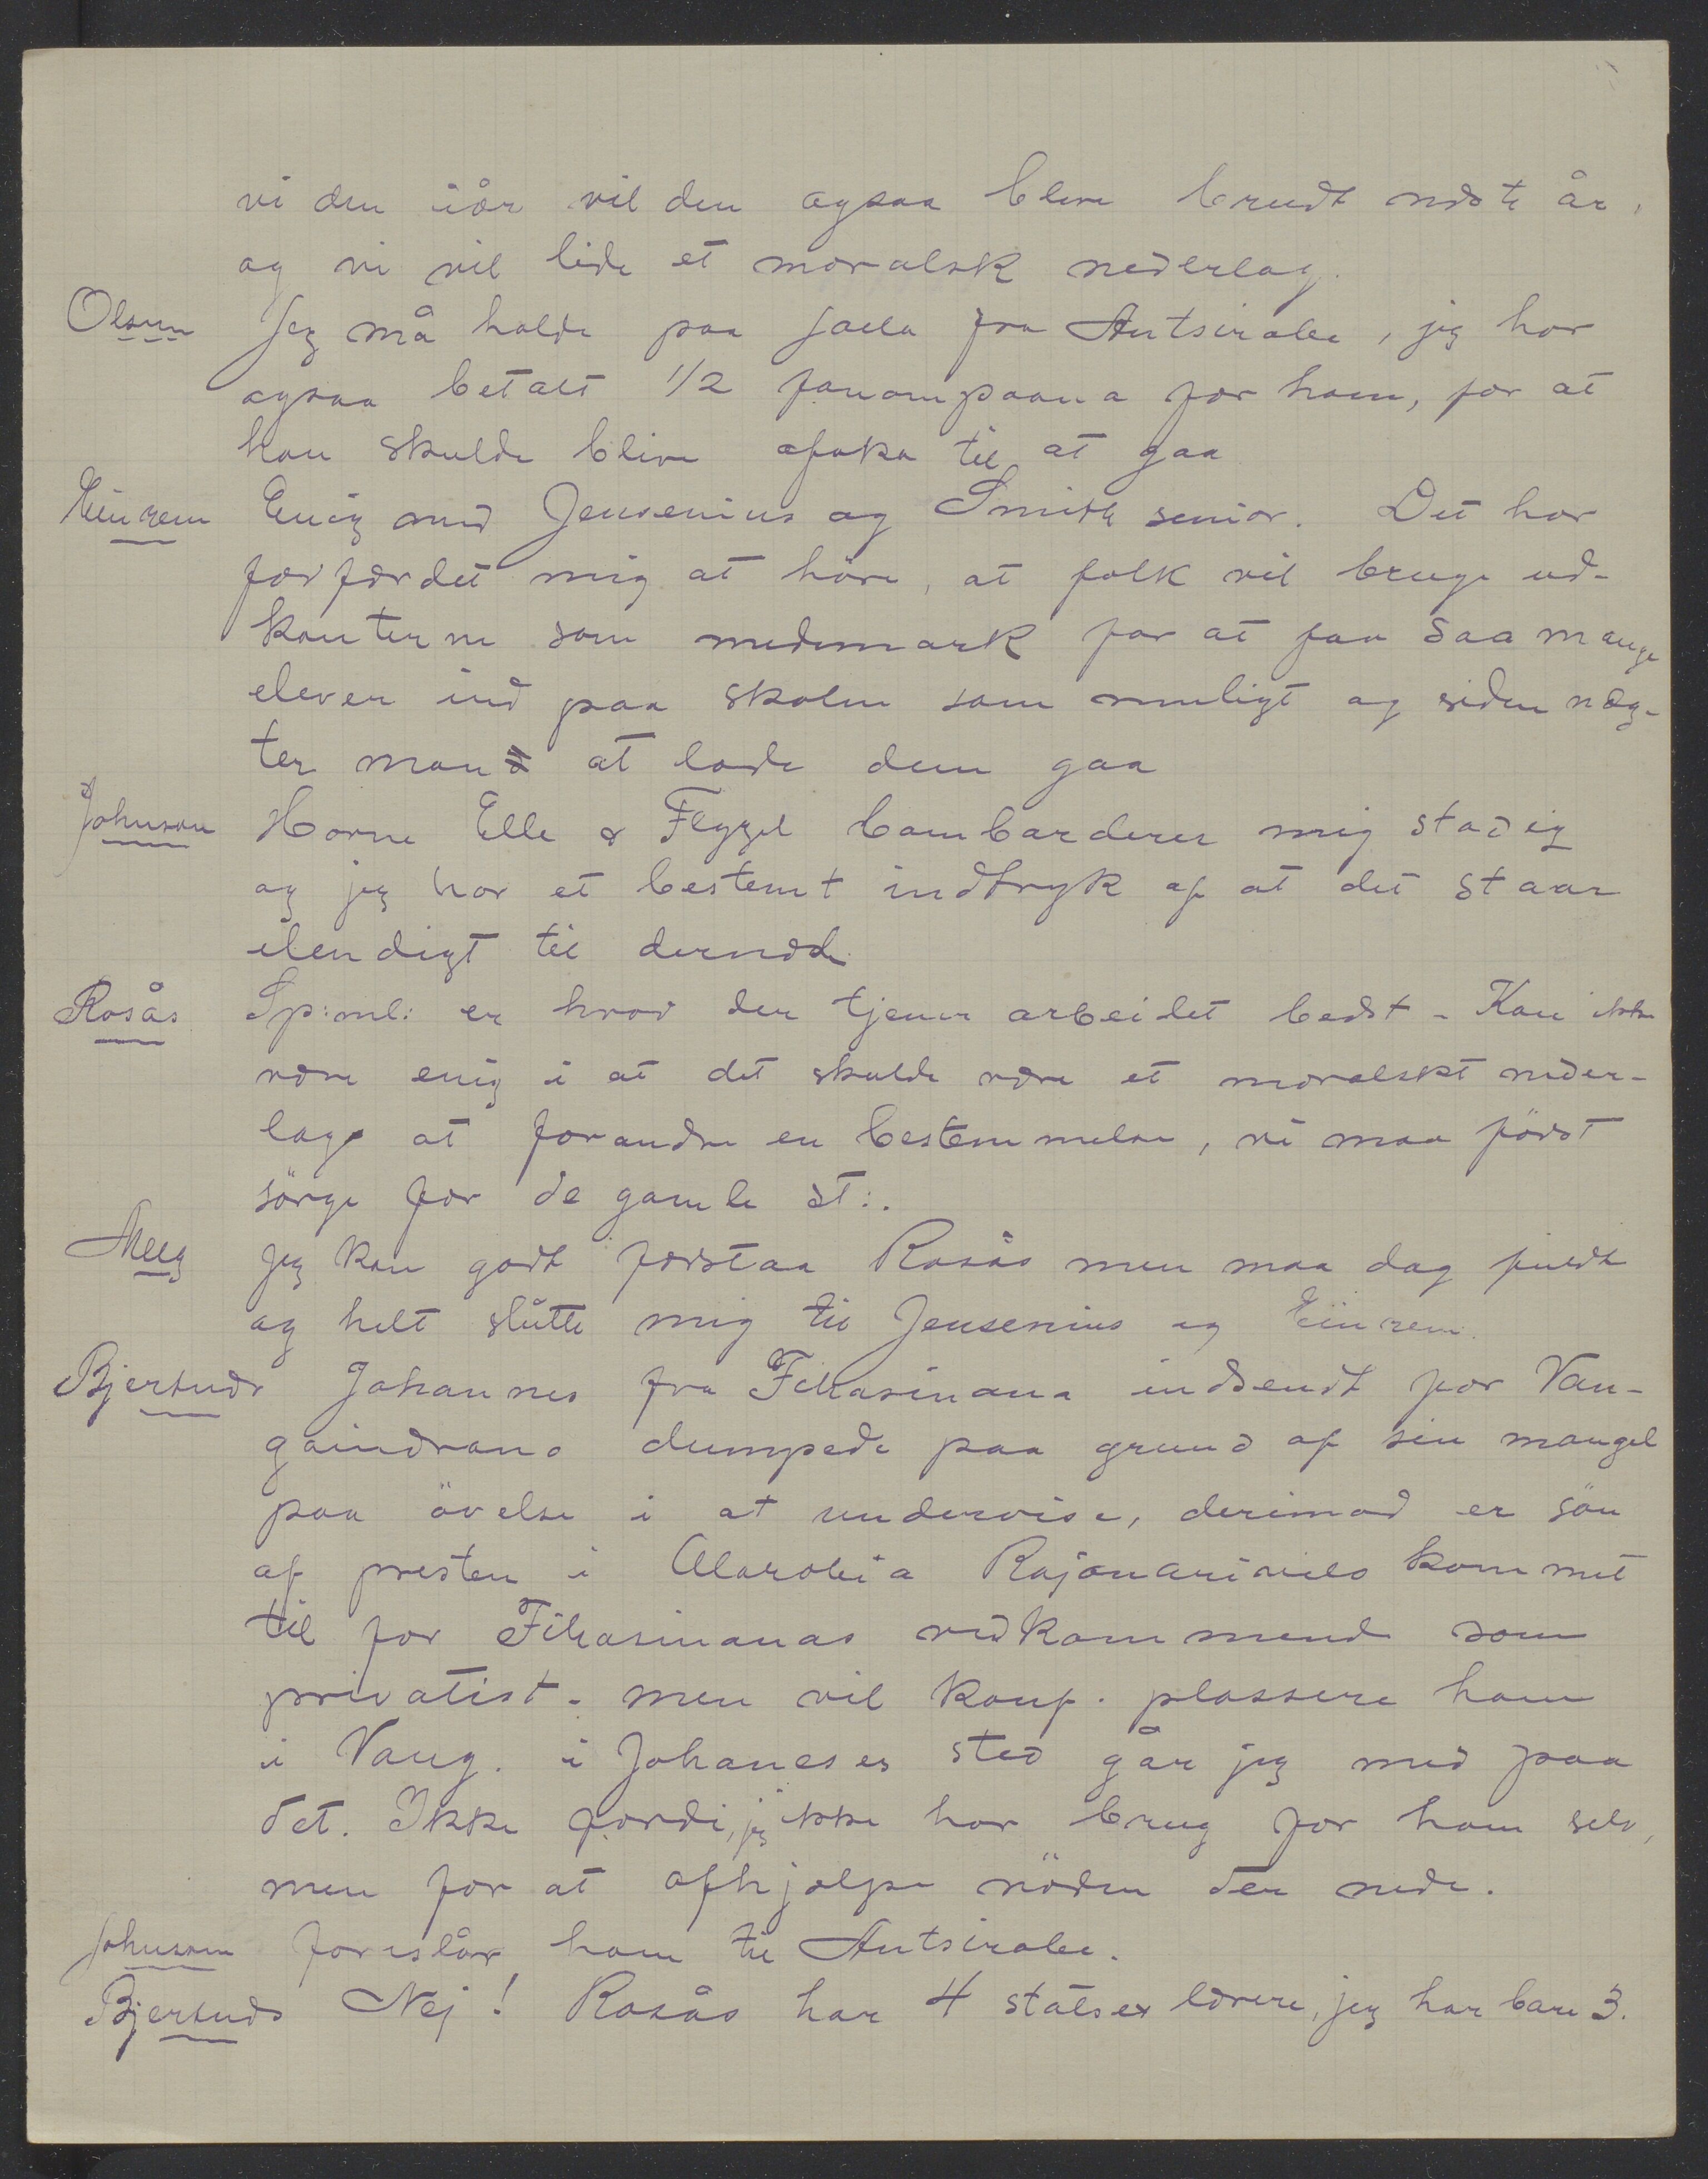 vi den iår vil den ogsaa blive brudt næste år,
og vi vil lide et moralsk nederlag.
Olsen Jeg må holde paa Joela fra Antsirabe, jeg har
ogsaa betalt 1/2 fanompoana for ham, for at
han skulde blive afaka til at gaa
Einrem Enig med Jensenius og Smith senior. Det har
forfærdet mig at höre, at folk vil bruge ud-
kanterne som medemark for at faa saa mange
elever ind paa skolen som muligt og siden næg-
ter man at lade dem gaa
Johnson Horne Elle & Flygel bombarderer mig stadig
og jeg har et bestemt indtryk af at det staar
elendigt til dernede
Rosås Sp:ml: er hvad der tjener arbeidet bedst - Kan ikke
være enig i at det skulde være et moralskt neder-
lag at forandre en bestemmelse, vi maa först
sörge for de gamle st:.
Meeg Jeg kan godt forstaa Rosås men maa dog fuldt
og helt slutte mig til Jensenius og Einrem.
Bjertnæs Johannes fra Fihasinana indsendt for Van-
gaindrano dumpede paa grund af sin mangel
paa övelse i at undervise, derimod er sön
af presten i Alarobia Rajonarivelo kommet
til for Fihasinanas vedkommende som
privatist - men vil konf. plassere ham
i Vang. i Johaneses sted går jeg med paa
det. Ikke fordi, jeg ikke har brug for ham selv,
men for at afhjælpe nöden der nede.
Johnson foreslår ham til Antsirabe.
Bjertnæs Nej! Rosås har 4 statsex lærere, jeg har bare 3.